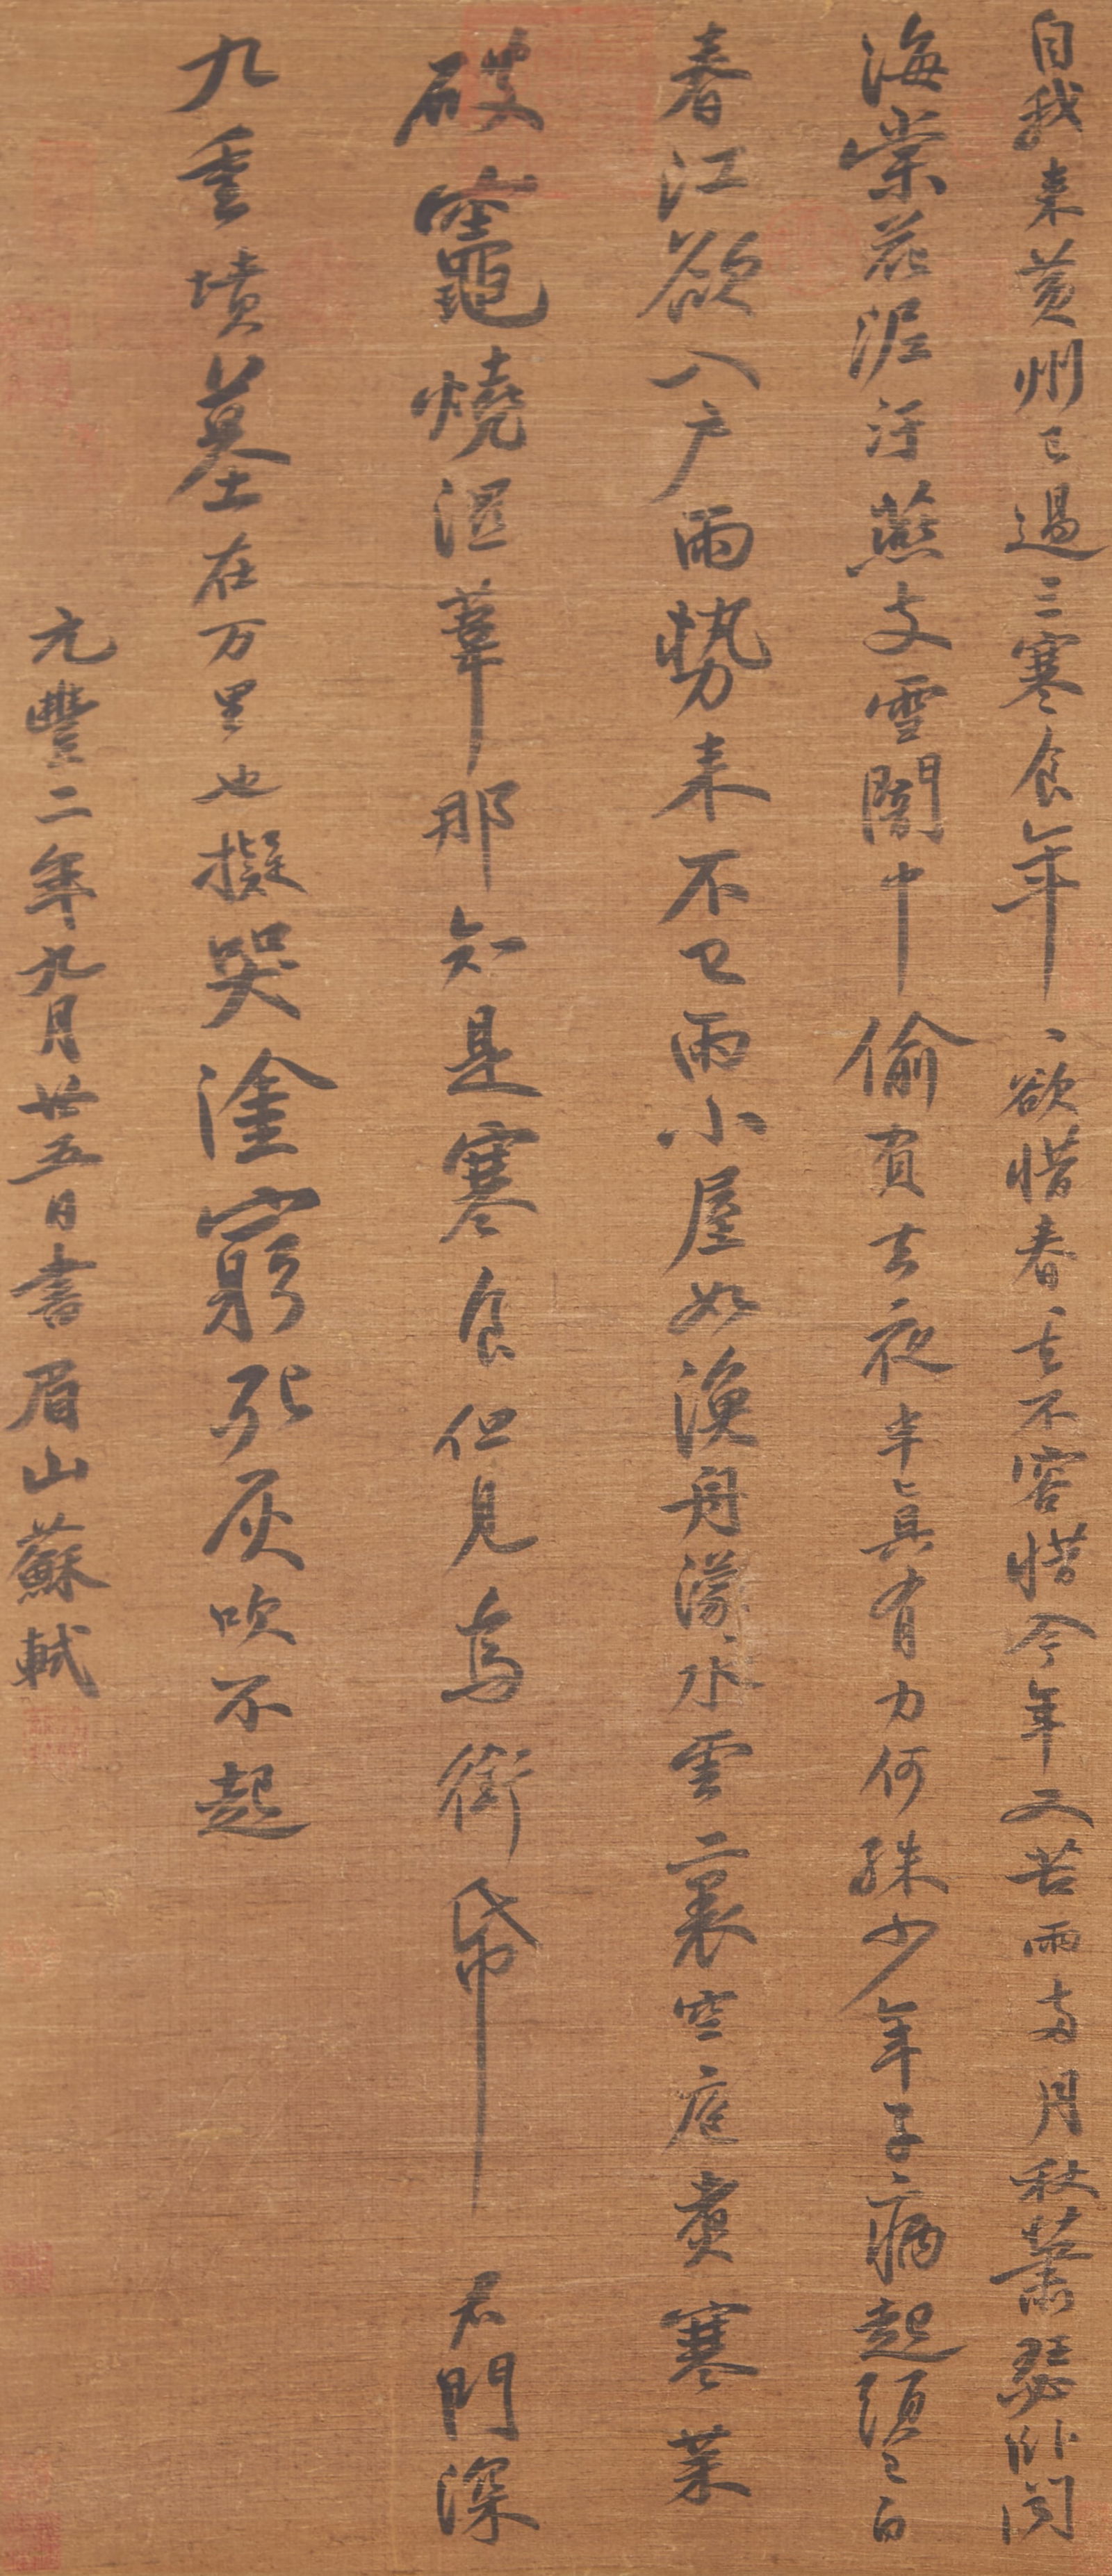 自我来黄州已過三寒食年、欲惜春去不容惜今年又苦雨兩月秋蕭瑟卧聞
海棠花泥汙燕支雪闇中偷負去夜半真有力何殊少年子病起須已白
春江欲入户雨勢来不已雨小屋如漁舟濛水雲裏空庖煮寒菜
破竈燒濕葦那知是寒食但見烏銜帋君門深
九重墳墓在万里也擬哭塗窮死灰吹不起
元豐二年九月廿五日書眉山蘇軾